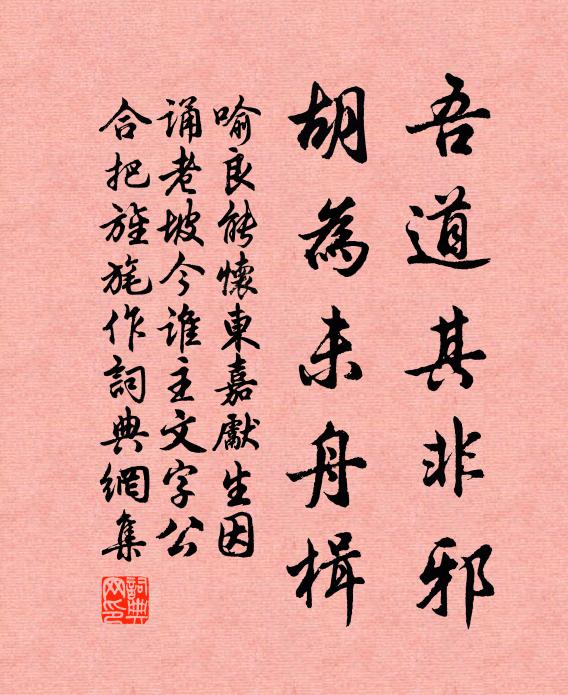 吾道其非邪
胡為未舟楫
喻良能懷東嘉獻生因
誦老坡今誰主文字公
合把旌旄作詞典網集
詞典網印